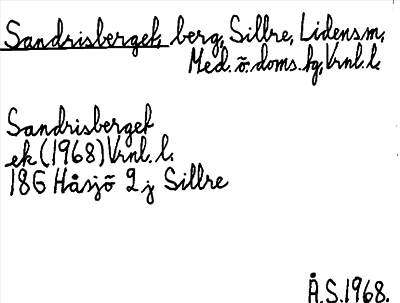 Sandrisberget, berg, Sillre, Lidens sn,
Med. ö. doms. fg, Vrnl. l.
Sandrisberget
ek (1968) Vrnl. l.
18G Håsjö 2 j Sillre
Å.S. 1968.